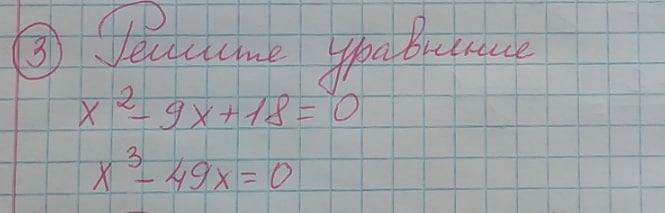 3 Решите уравнение
x² - 9x + 18 = 0
x³ - 49x = 0